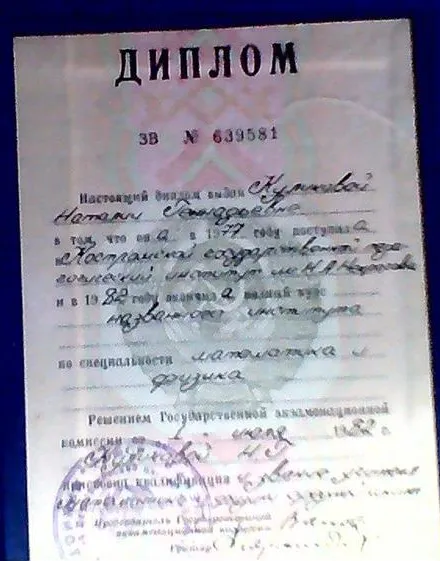 ДИПЛОМ
ЗВ № 639581
Настоящий диплом выдан
Наталии Геннадьевне
в том, что она в 1977 году поступила
в Костромской государственный педа-
гогический институт им. Н.А. Некрасова
и в 1982 году окончила полный курс
названного института
по специальности математика и
физика
Решением Государственной экзаменационной
комиссии от 1 1982 г.
Н.Г.
присвоена квалификация
Председатель Государственной
экзаменационной комиссии
Ректор